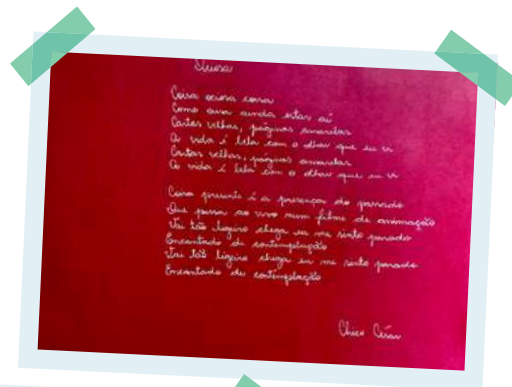 Ociosa
Coisa ociosa coisa
Como ouso ainda estar aí
Cartas velhas, páginas amarelas
A vida é bela com o olhar que eu vi
Cartas velhas, páginas amarelas
A vida é bela com o olhar que eu vi
Coisa presente é a presença do passado
Que passa ao vivo num filme de animação
Vai tão ligeiro chega eu me sinto parado
Encantado de contemplação
Vai tão ligeiro chega eu me sinto parado
Encantado de contemplação
Chico César